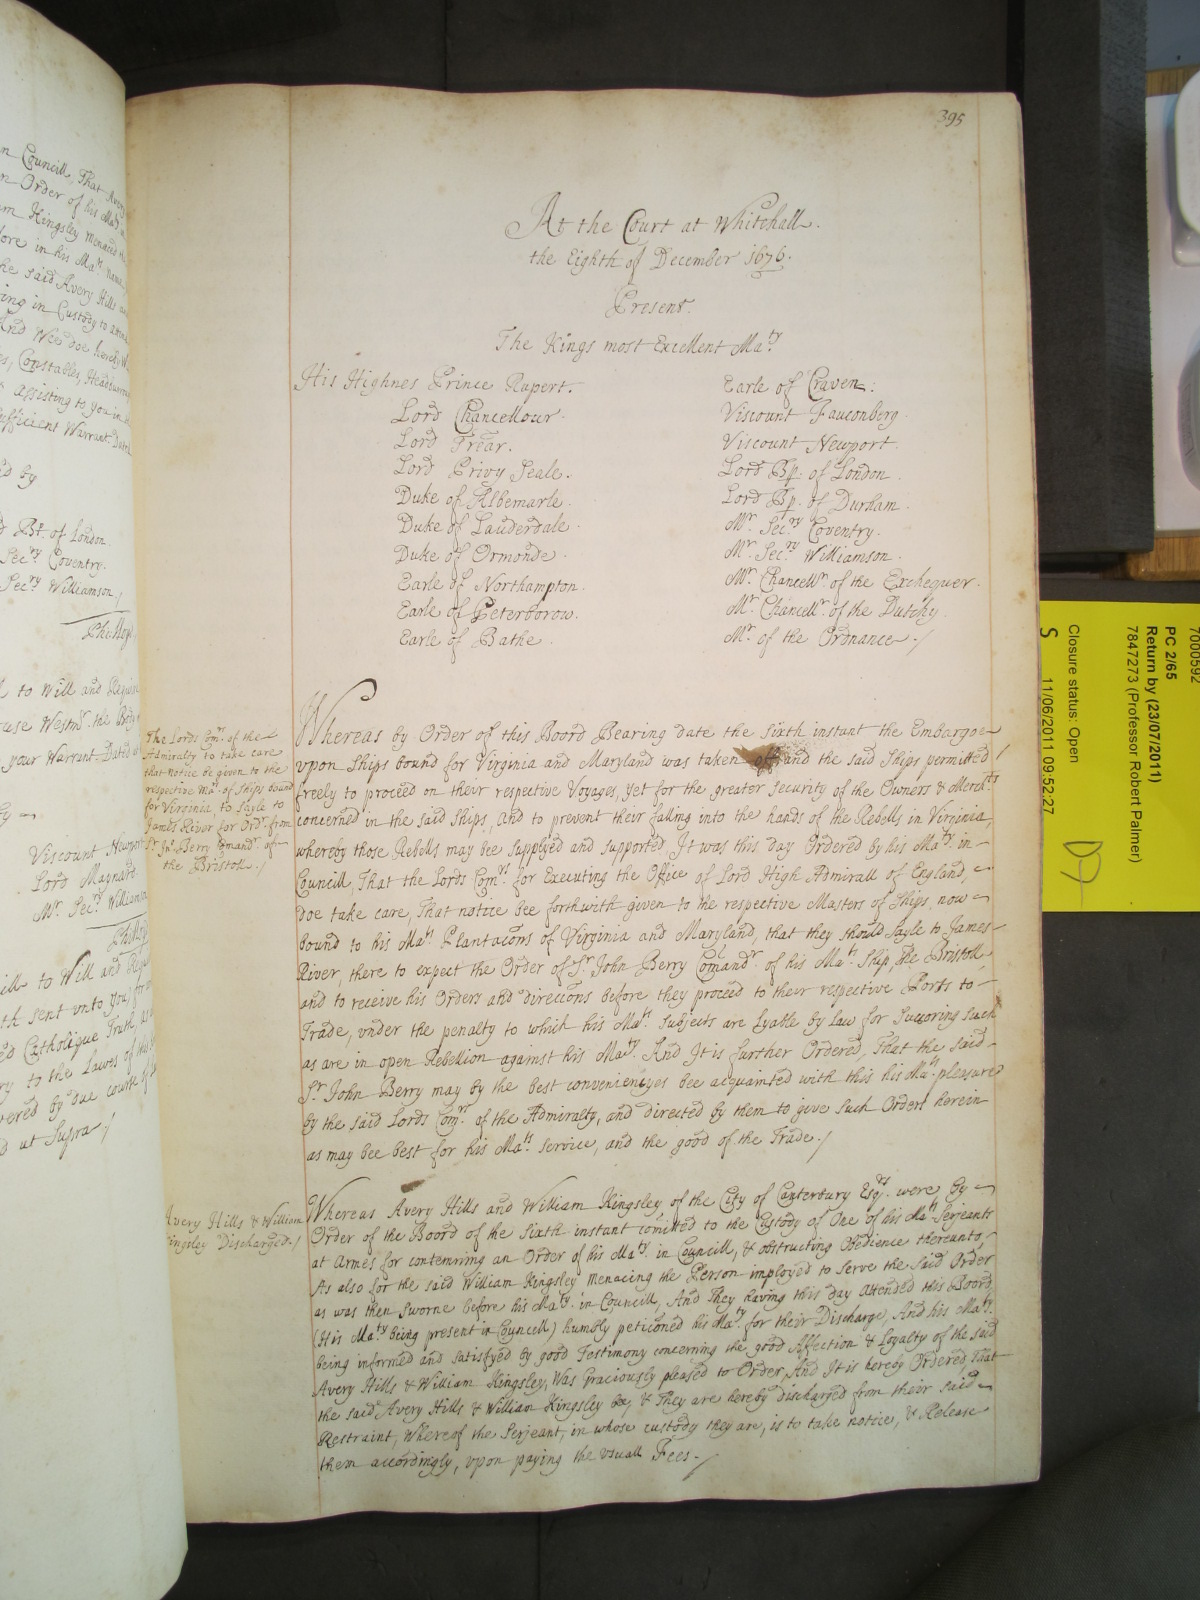 n Councill, That Avery
n Order of his Ma^ts
m Kingsley menaced the
fore in his Ma^ts name
he said Avery Hills and
ing in Custody to attend
And Wee doe hereby W
es, Constables, Headborrow
assisting to you in
ufficient Warrant. Dated
d by
Bp. of London
Sec^ry Coventry.
Sec^ry Williamson /
Phi: Lloyd
to Will and Require
use Westm^r the Body
your Warrant. Dated
Viscount Newport
Lord Maynard
M^r Sec^ry Williamson
ill to Will and Requ
th sent vnto you, for
ed Catholique Truth, as
ry to the Lawes of this
vered by due course of
d at Supra /
395
At the Court at Whitehall.
the Eighth of December 1676.
Present.
The Kings most Excellent Ma^ty
His Highnes Prince Rupert.
Lord Chancellour.
Lord Trear.
Lord Privy Seale.
Duke of Albemarle.
Duke of Lauderdale.
Duke of Ormonde.
Earle of Northampton.
Earle of Peterborow.
Earle of Bathe
Earle of Craven:
Viscount Fauconberg.
Viscount Newport
Lord Bp. of London.
Lord Bp. of Durham.
M^r Sec^ry Coventry.
M^r Sec^ry Williamson.
M^r Chancell^r of the Exchequer.
M^r Chancell^r of the Dutchy.
M^r of the Ordnance. /
The Lords Com^rs of the
Admiralty to take care
that notice be given to the
respective Ma^rs of Ships bound
for Virginia, to Sayle to
James River for Ord^rs from
S^r Jn^o Berry Comand^r of
the Bristoll. /
Whereas by Order of this Board Bearing date the Sixth instant the Embargoe
vpon Ships bound for Virginia and Maryland was taken off and the said Ships permitted
freely to proceed on their respective Voyages, yet for the greater security of the Owners & Merch^ts
concerned in the said Ships, and to prevent their falling into the hands of the Rebells in Virginia,
whereby those Rebells may bee supplyed and supported, It was this day Ordered by his Ma^ty in
Councill, That the Lords Com^rs for Executing the Office of Lord High Admirall of England,
doe take care, That notice bee forthwith given to the respective Masters of Ships now
bound to his Ma^ts Plantacons of Virginia and Maryland, that they should Sayle to James
River, there to expect the Order of S^r John Berry Comand^r of his Ma^ts Ship, the Bristoll,
and to receive his Orders and direccons before they proceed to their respective Ports to
Trade, vnder the penalty to which his Ma^ts Subjects are lyable by law for Succoring such
as are in open Rebellion against his Ma^ty. And It is further Ordered, That the said
S^r John Berry may by the best conveniencyes bee acquainted with this his Ma^ts pleasure
by the said Lords Com^rs of the Admiralty, and directed by them to give such Orders herein
as may bee best for his Ma^ts service, and the good of the Trade. /
Avery Hills & William
Kingsley Discharged. /
Whereas Avery Hills and William Kingsley of the City of Canterbury Esq^rs were by
Order of the Board of the Sixth instant comitted to the Custody of One of his Ma^ts Serjeants
at Armes for contemning an Order of his Ma^ty in Councill, & obstructing Obedience thereunto,
As also for the said William Kingsley menacing the Person imployed to serve the said Order
as was then Sworne before his Ma^ty in Councill, And They having this day attended this Board,
(His Ma^ty being present in Councell) humbly peticoned his Ma^ty for their Discharge, And his Ma^ty
being informed and satisfyed by good Testimony concerning the good Affection & Loyalty of the said
Avery Hills & William Kingsley, Was Graciously pleased to Order, And It is hereby Ordered, That
the said Avery Hills & William Kingsley be, & They are hereby discharged from their said
Restraint, Whereof the Serjeant, in whose custody they are, is to take notice, & Release
them accordingly, vpon paying the vsuall Fees. /
7000592
PC 2/65
Return by (23/07/2011)
7847273 (Professor Robert Palmer)
Closure status: Open
S 11/06/2011 09:52:27